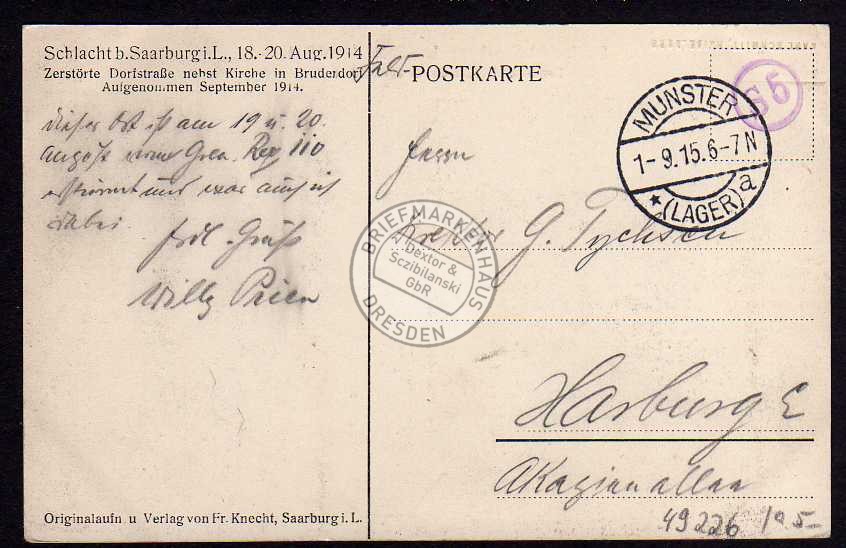 Schlacht b. Saarburg i. L., 18.-20. Aug. 1914
Zerstörte Dorfstraße nebst Kirche in Bruderdorf
Aufgenommen September 1914.
dieser Ort ist am 19 u. 20.
August vom Gren. Reg 110
erstürmt und war auch ich
dabei
Gruß
Willy
Originalaufn u Verlag von Fr. Knecht, Saarburg i. L.
Feldt-
POSTKARTE
MUNSTER
1-9.15.6-7N
* (LAGER) a
Herrn
G. Tychsen
Harburg E
Akazienallee
49226 10 5-
BRIEFMARKENHAUS
Dextor &
Sczibilanski
GbR
DRESDEN